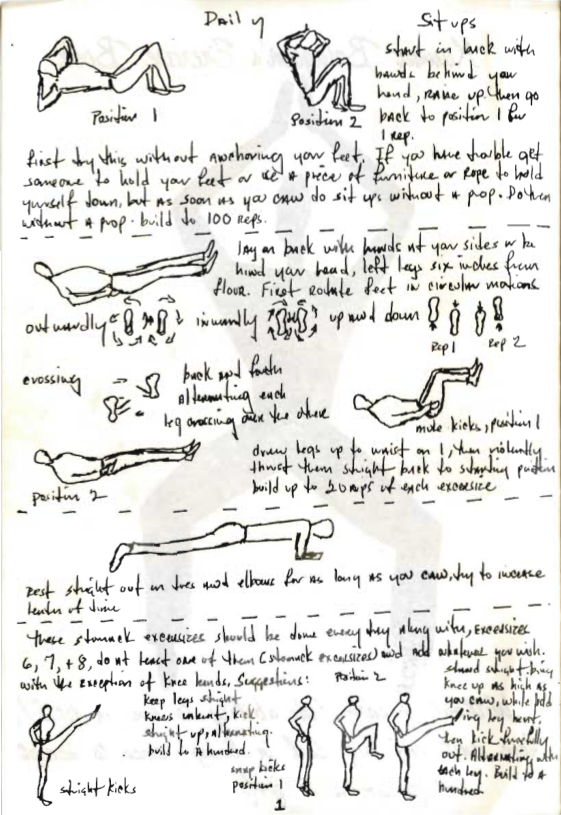 Daily
Sit ups
start in back with
hands behind your
head, raise up. then go
back to position 1 for
1 rep.
Position 1
Position 2
first try this without anchoring your feet. If you have trouble get
someone to hold your feet or use a piece of furniture or rope to hold
yourself down, but as soon as you can do sit ups without a prop. Do them
without a prop. build to 100 reps.
lay on back with hands at your sides or be
hind your head, left legs six inches from
floor. First rotate feet in circular motions
outwardly
inwardly
up and down
Rep 1
Rep 2
crossing
back and forth
alternating each
leg crossing over the other
mule kicks, position 1
position 2
draw legs up to waist on 1, then violently
thrust them straight back to starting position
build up to 20 reps of each excersize
Rest straight out on toes and elbows for as long as you can, try to increase
length of time
these stomack excersizes should be done every day along with, excersizes
6, 7, + 8, do at least one of them (stomack excersizes) and add whatever you wish.
with the exception of knee bends, Suggestions:
Position 2
keep legs straight
knees unbent, kick
straight up, alternating.
build to a hundred.
straight kicks
snap kicks
position 1
stand straight bring
knee up as high as
you can, while
leg bent.
then kick forcefully
out. Alternating with
each leg. Build to a
hundred
1